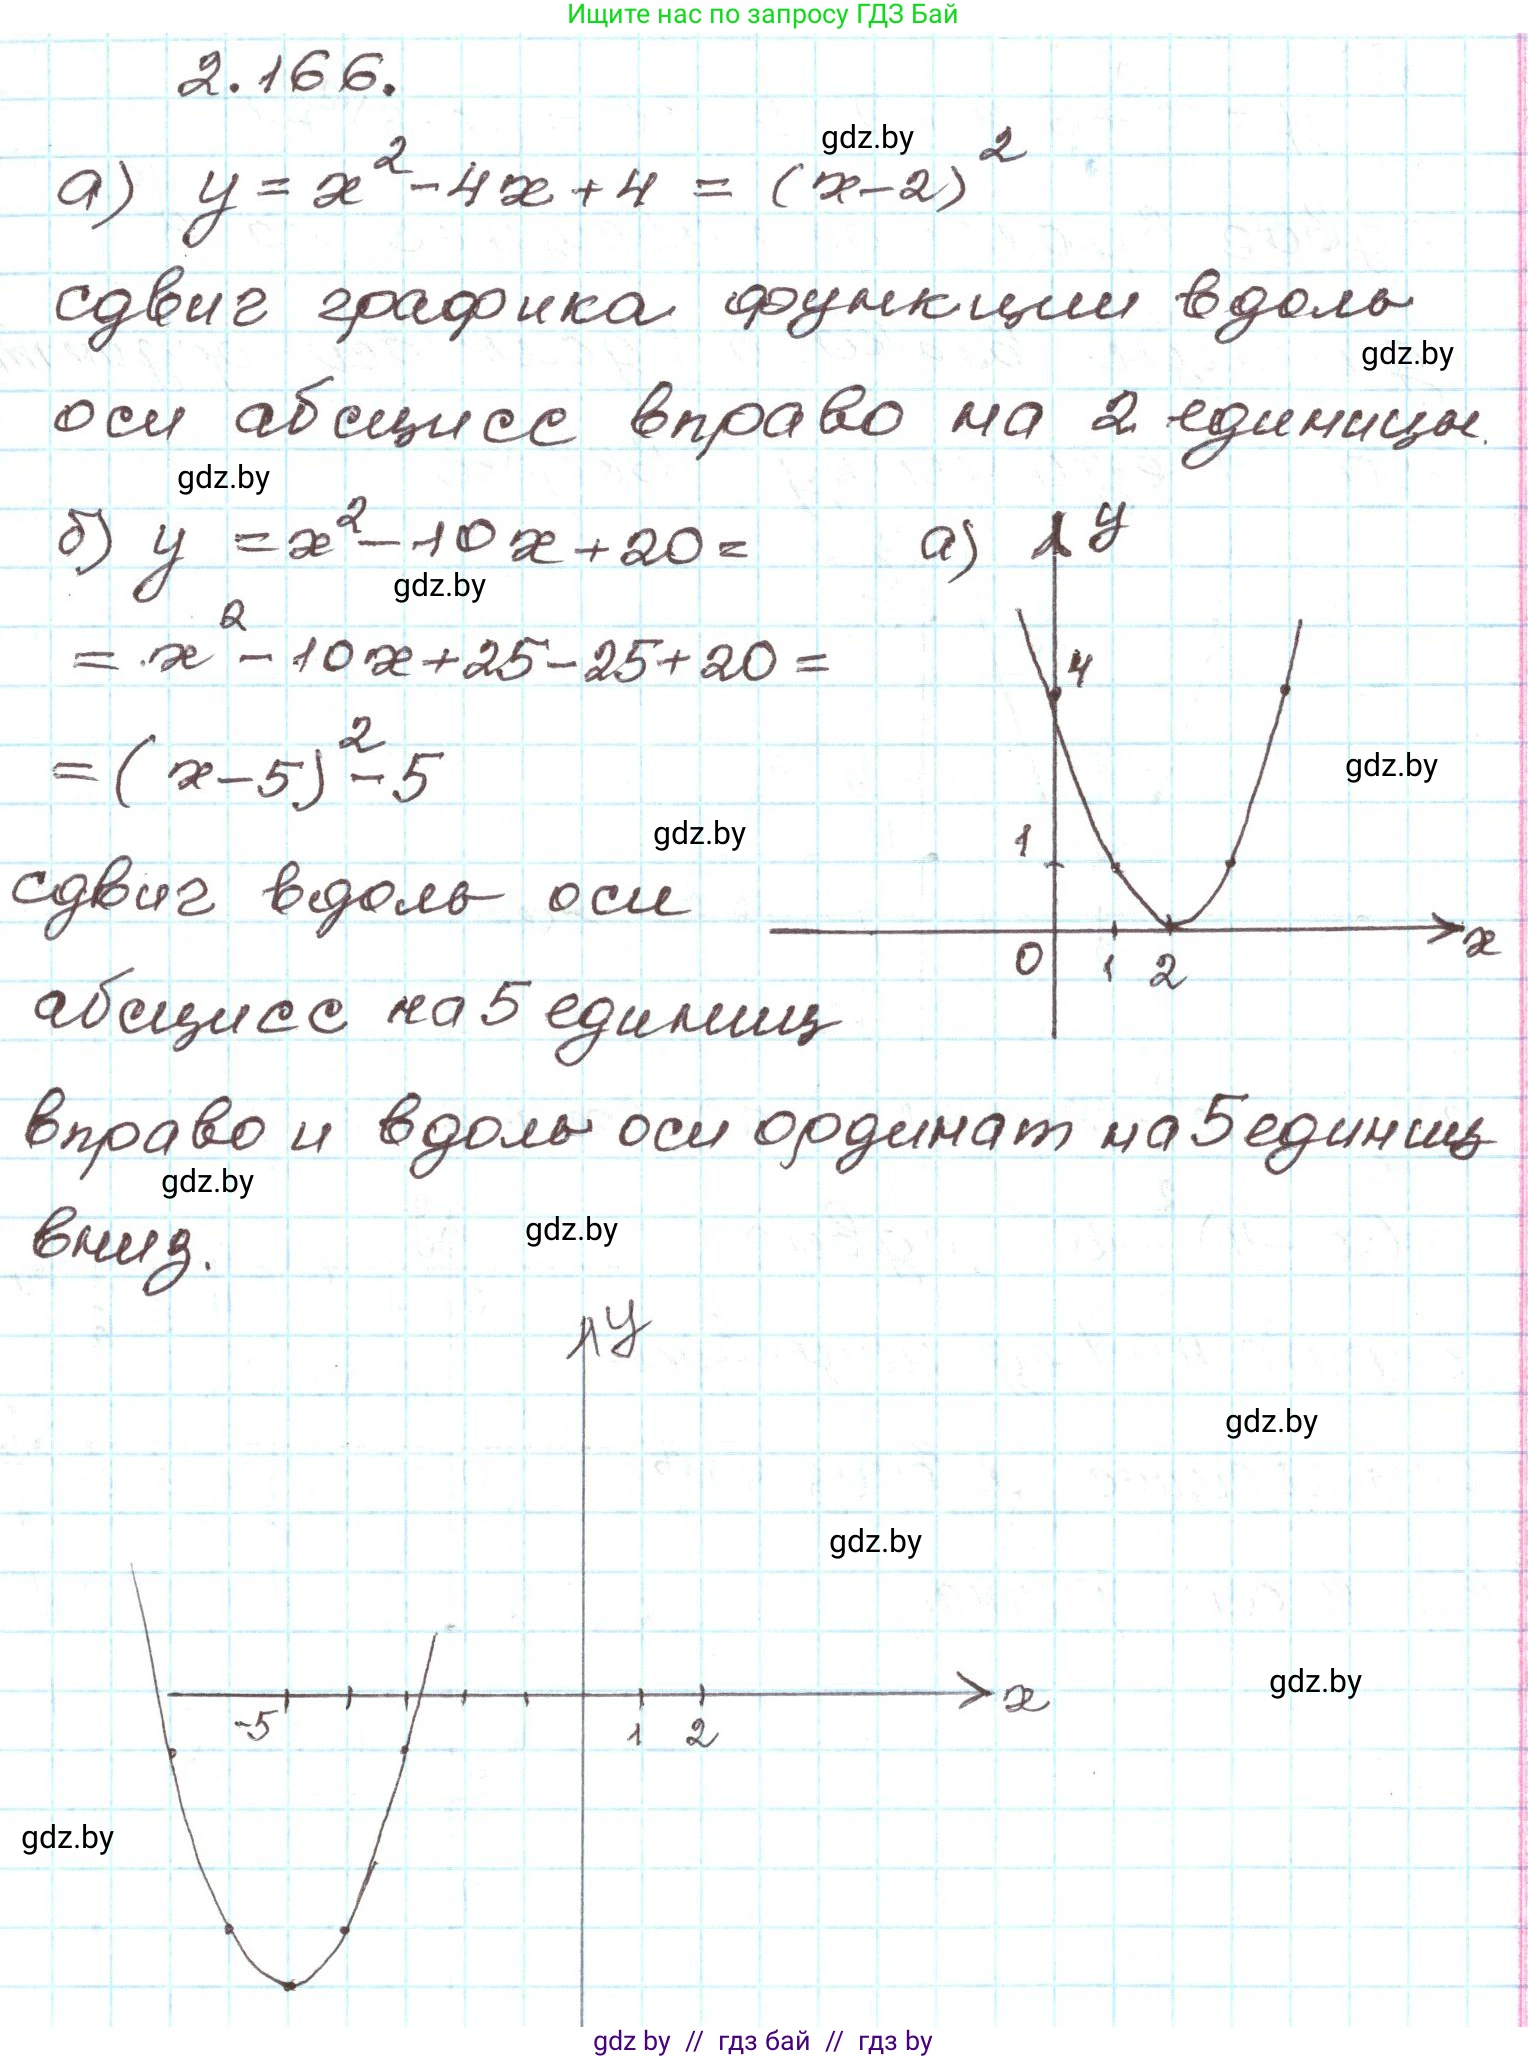 Ищите нас по запросу ГДЗ Бай
2.166.
gdz.by
а) y = x² - 4x + 4 = (x - 2)²
сдвиг графика функции вдоль
gdz.by
оси абсцисс вправо на 2 единицы.
gdz.by
б) y = x² - 10x + 20 =
gdz.by
= x² - 10x + 25 - 25 + 20 =
= (x - 5)² - 5
gdz.by
сдвиг вдоль оси
абсцисс на 5 единиц
а) y
4
gdz.by
1
0 1 2 x
вправо и вдоль оси ординат на 5 единиц
gdz.by
вниз.
gdz.by
y
gdz.by
gdz.by
gdz.by
-5 1 2 x
gdz.by
gdz by // гдз бай // гдз by